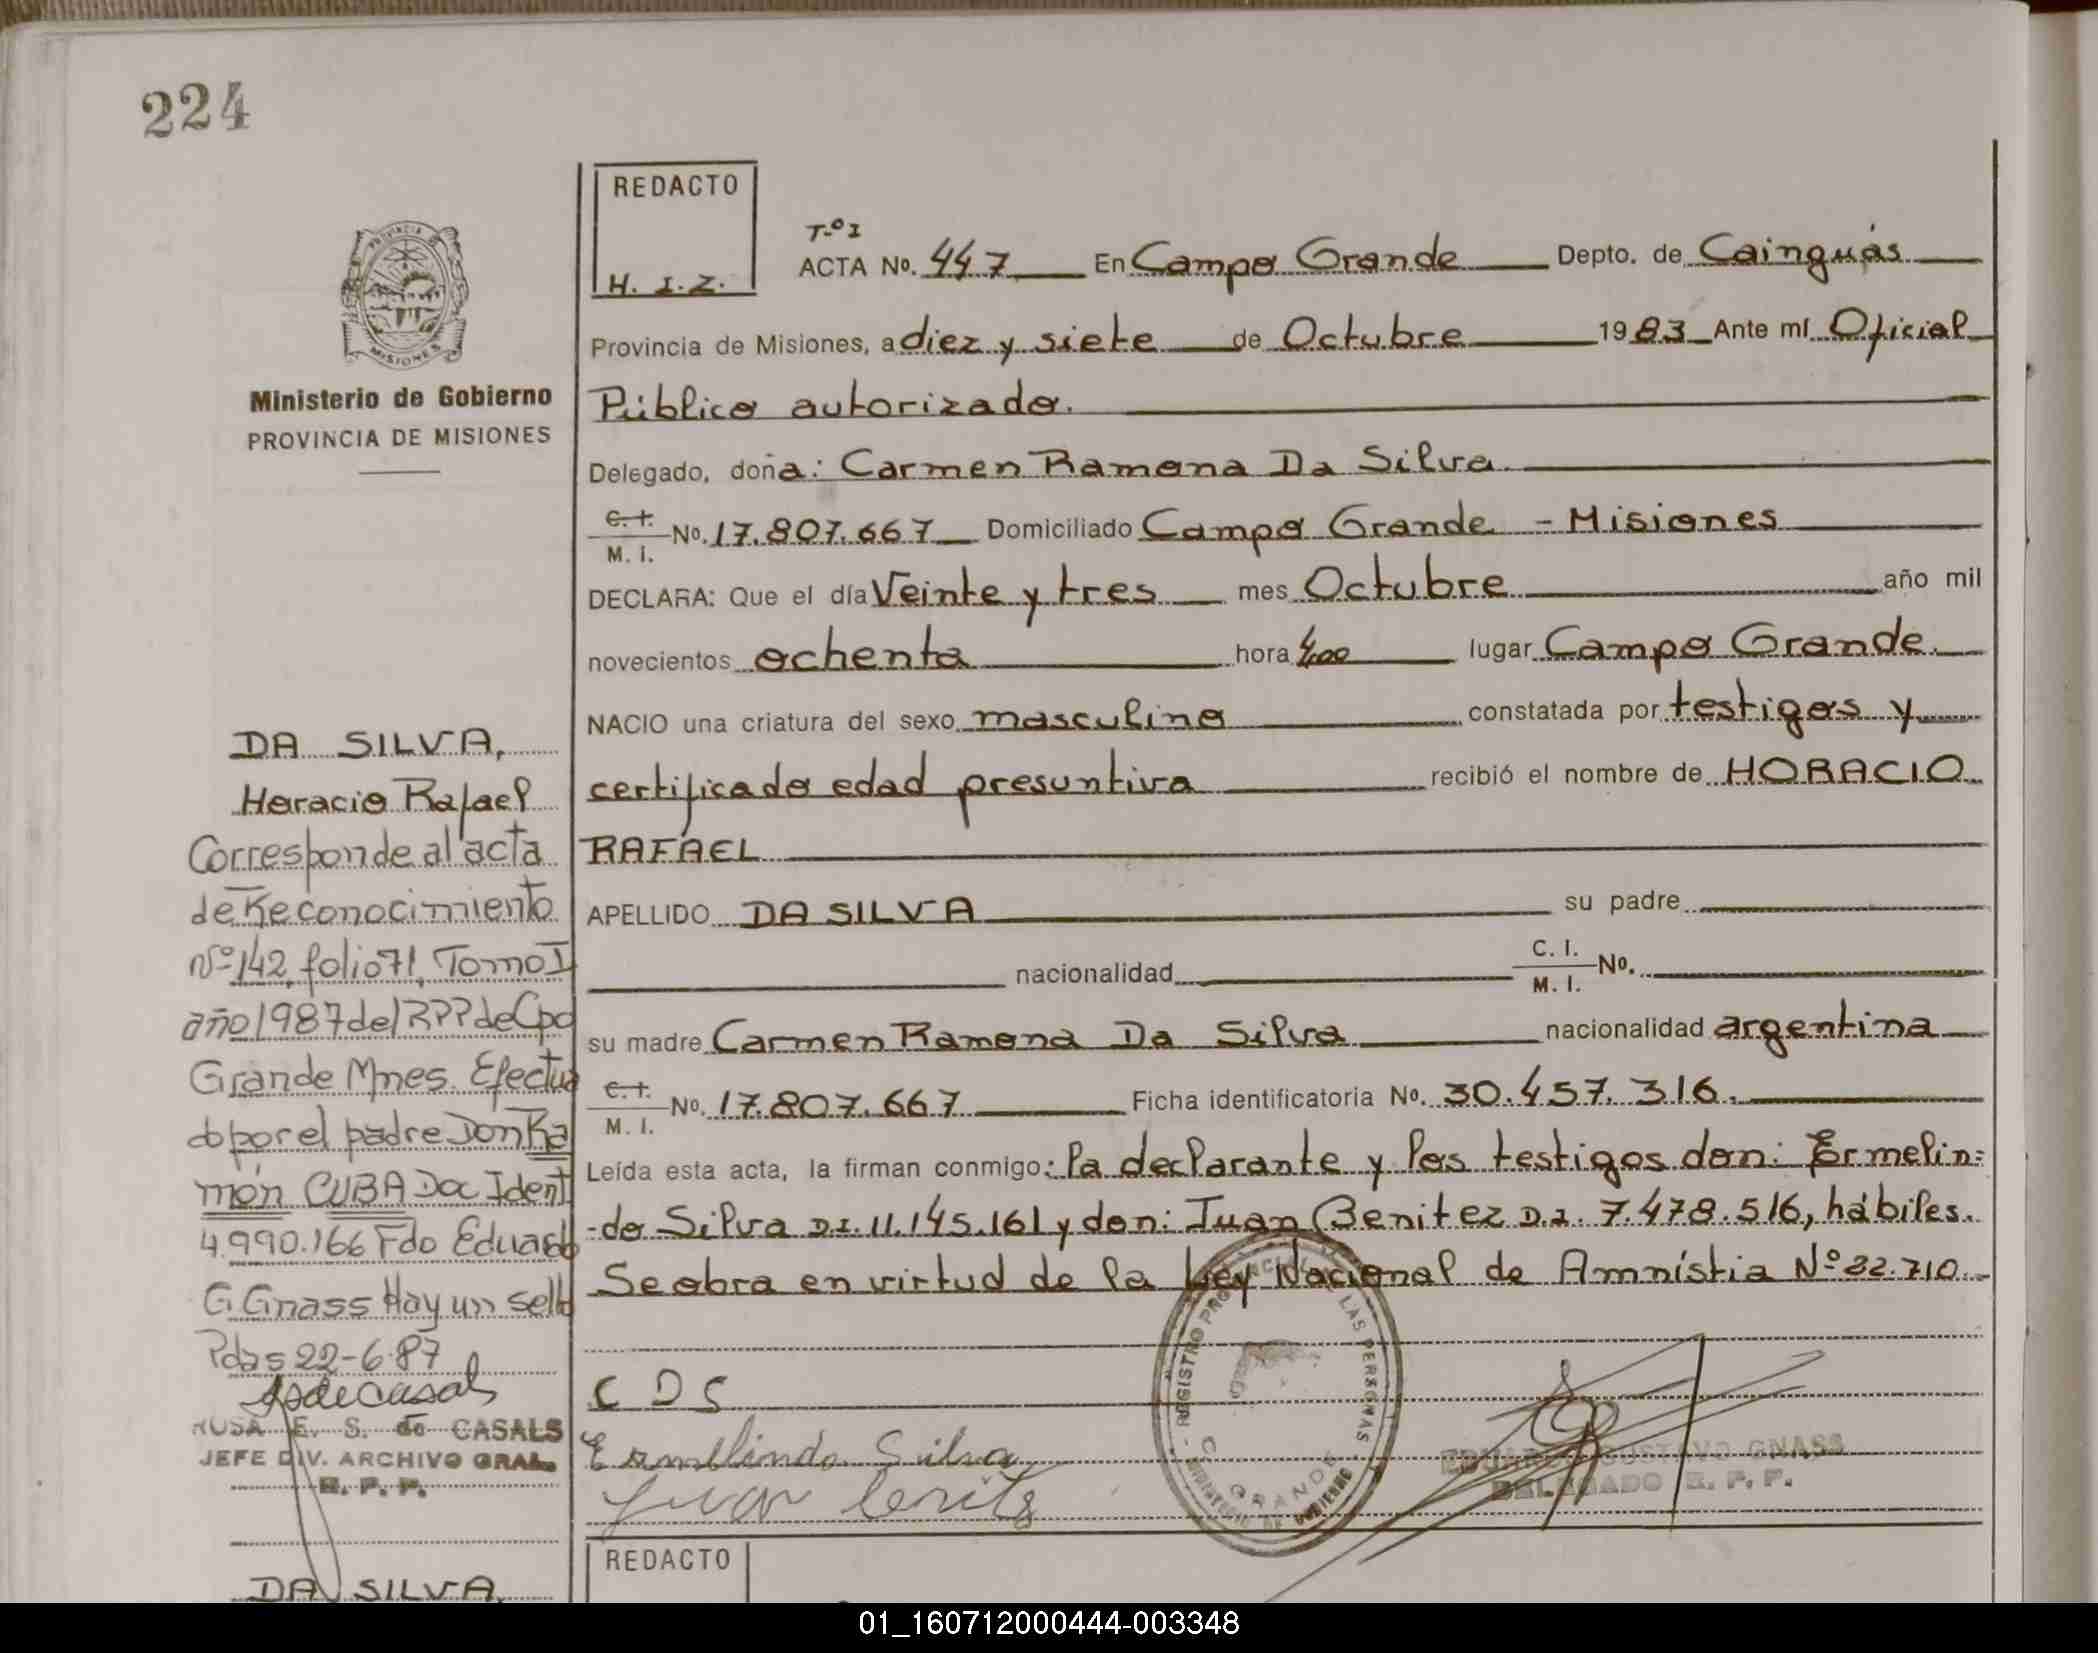 224
REDACTO
H. I. Z.
T.º I
ACTA Nº. 447 En Campo Grande Depto. de Cainguás
Provincia de Misiones, a diez y siete de Octubre 1983 Ante mí Oficial
Público autorizado.
Delegado, doña: Carmen Ramona Da Silva
C. I.
M. I. Nº. 17.807.667 Domiciliado Campo Grande - Misiones
DECLARA: Que el día Veinte y tres mes Octubre año mil
novecientos ochenta hora 4,00 lugar Campo Grande.
NACIO una criatura del sexo masculino constatada por testigos y
certificado edad presuntiva recibió el nombre de HORACIO
RAFAEL
APELLIDO DA SILVA su padre
nacionalidad C. I.
M. I. Nº.
su madre Carmen Ramona Da Silva nacionalidad argentina
C. I.
M. I. Nº. 17.807.667 Ficha identificatoria Nº. 30.457.316.
Leída esta acta, la firman conmigo: la declarante y los testigos don: Ermelin-
-do Silva D.I. 11.145.161 y don: Juan Benitez D.I. 7.478.516, hábiles.
Se obra en virtud de la Ley Nacional de Amnístia Nº 22.710.
C D S
Ermelindo Silva
Juan Benitez
REGISTRO PROVINCIAL DE LAS PERSONAS
C. GRANDE
MINISTERIO DE GOBIERNO
EDUARDO GUSTAVO GNASS
DELEGADO R. P. P.
PROVINCIA
MISIONES
Ministerio de Gobierno
PROVINCIA DE MISIONES
DA SILVA,
Horacio Rafael
Corresponde al acta
de Reconocimiento
Nº 142, folio 71, Tomo I
año 1987 del RPP de Cpo
Grande Mnes. Efectua
do por el padre Don Ra
món CUBA Doc Ident
4.990.166 Fdo Eduardo
G Gnass Hay un sello
Pdas 22-6-87
ROSA E. S. de CASALS
JEFE DIV. ARCHIVO GRAL.
R. P. P.
REDACTO
DA SILVA,
01_160712000444-003348